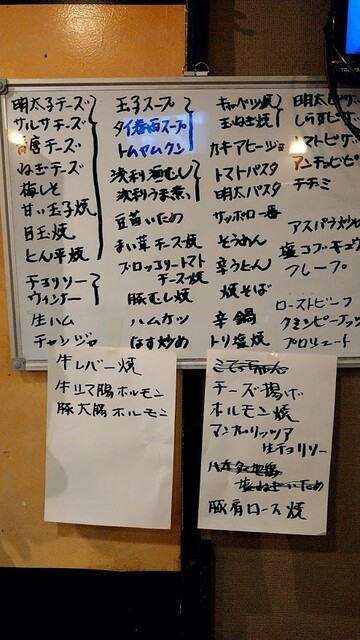 明太子チーズ
サルサチーズ
ねぎチーズ
梅しそ
甘い玉子焼
目玉焼
とん平焼
チョリソー
ウィンナー
生ハム
チャンジャ
玉子スープ
タイ春雨スープ
トムヤムクン
浅利酒むし
浅利うま煮
豆苗いため
まい茸チーズ焼
ブロッコリートマト
チーズ焼
豚むし焼
ハムカツ
なす炒め
キャベツ焼
玉ねぎ焼
カキアヒージョ
トマトパスタ
明太パスタ
サッポロ一番
そうめん
辛うどん
焼そば
辛鍋
トリ塩焼
明太ピザ
しらすピザ
トマトピザ
アンチョビピ
チヂミ
アスパラ
塩コブキュウ
クレープ
ローストビーフ
クリンピーナッツ
プロシュート
牛レバー焼
牛シマ腸ホルモン
豚大腸ホルモン
チーズ揚げ
ホルモン焼
マンガリッツァ
生チョリソー
豚肩ロース焼